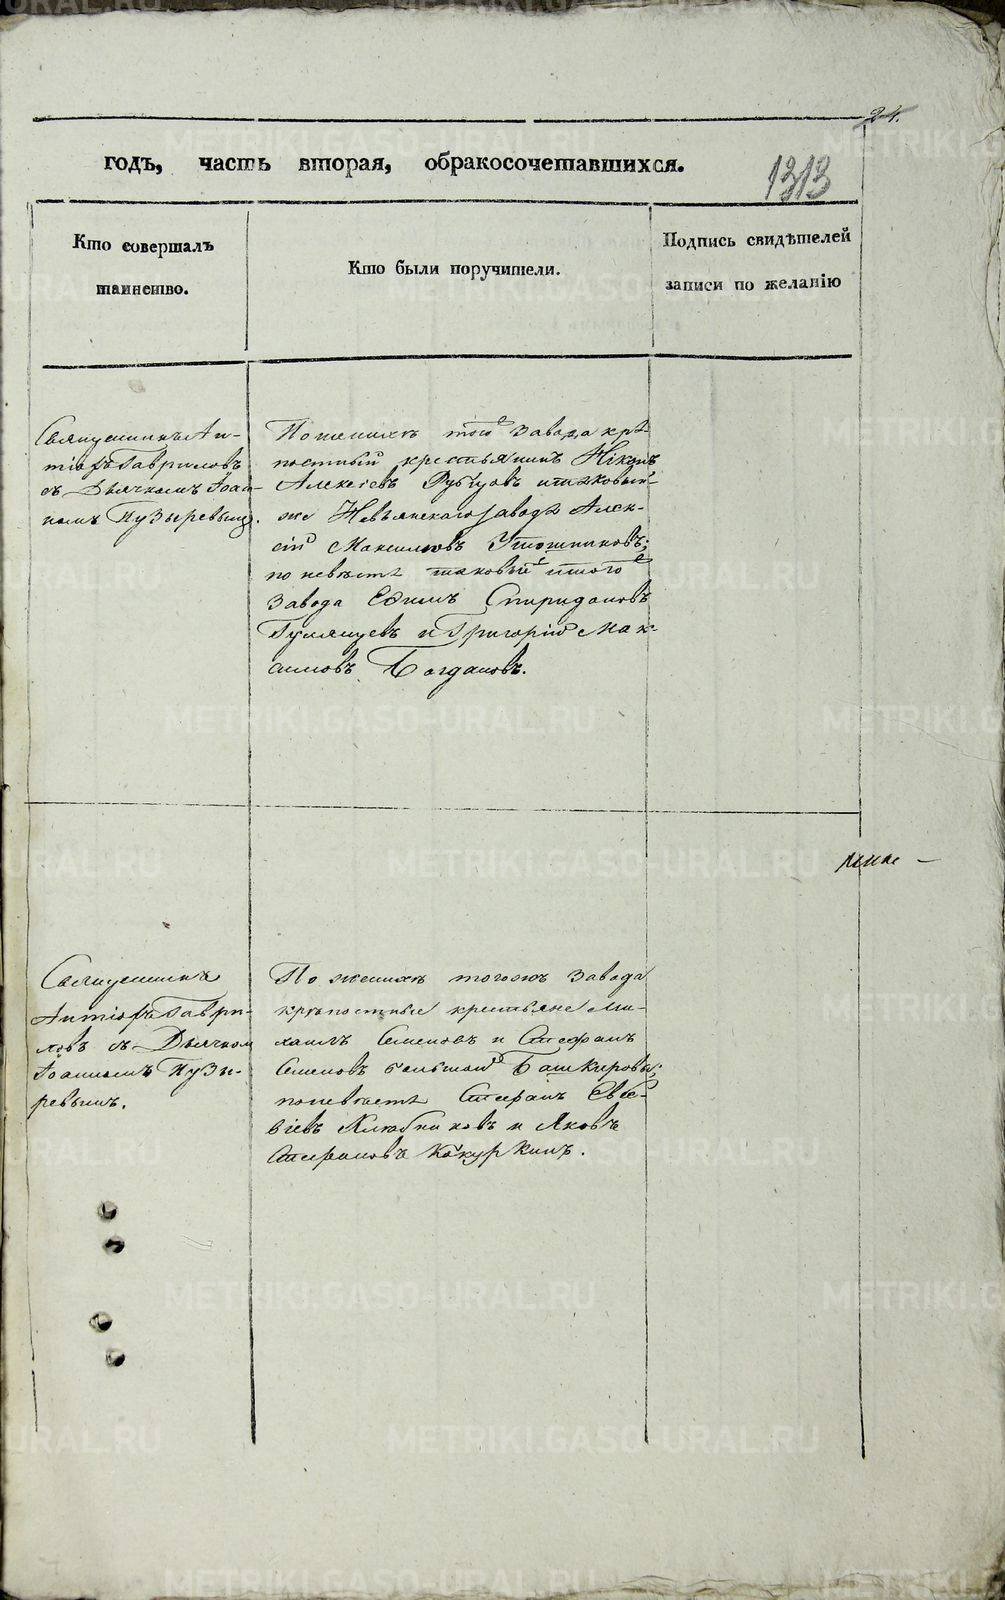 24.
годъ, часть вторая, обракосочетавшихся.
1313
Кто совершалъ
таинство.
Кто были поручители.
Подпись свидѣтелей
записи по желанію
Священникъ Ан-
тіофъ Гавриловъ
съ Дьячкомъ Іоан-
номъ Пузыревымъ.
По женихѣ того завода крѣ-
постный крестьянинъ
Алексѣевъ Рубцовъ и таковый-
же Невьянскаго завода Алек-
сій Максимовъ Утошниковъ;
по невѣстѣ таковый и того
завода Ефимъ Спиридоновъ
Гулящевъ и Григорій Мак-
симовъ Богдановъ.
Священникъ
Антіофъ Гаври-
ловъ съ Дьячкомъ
Іоанномъ Пузы-
ревымъ.
По женихѣ тогожъ завода
крѣпостные крестьяне Ми-
хаилъ Семеновъ и Стефанъ
Семеновъ большой Башкировы;
по невѣстѣ Стефанъ Евсе-
віевъ и Яковъ
Стефановъ Кокуркинъ.
METRIKI.GASO-URAL.RU